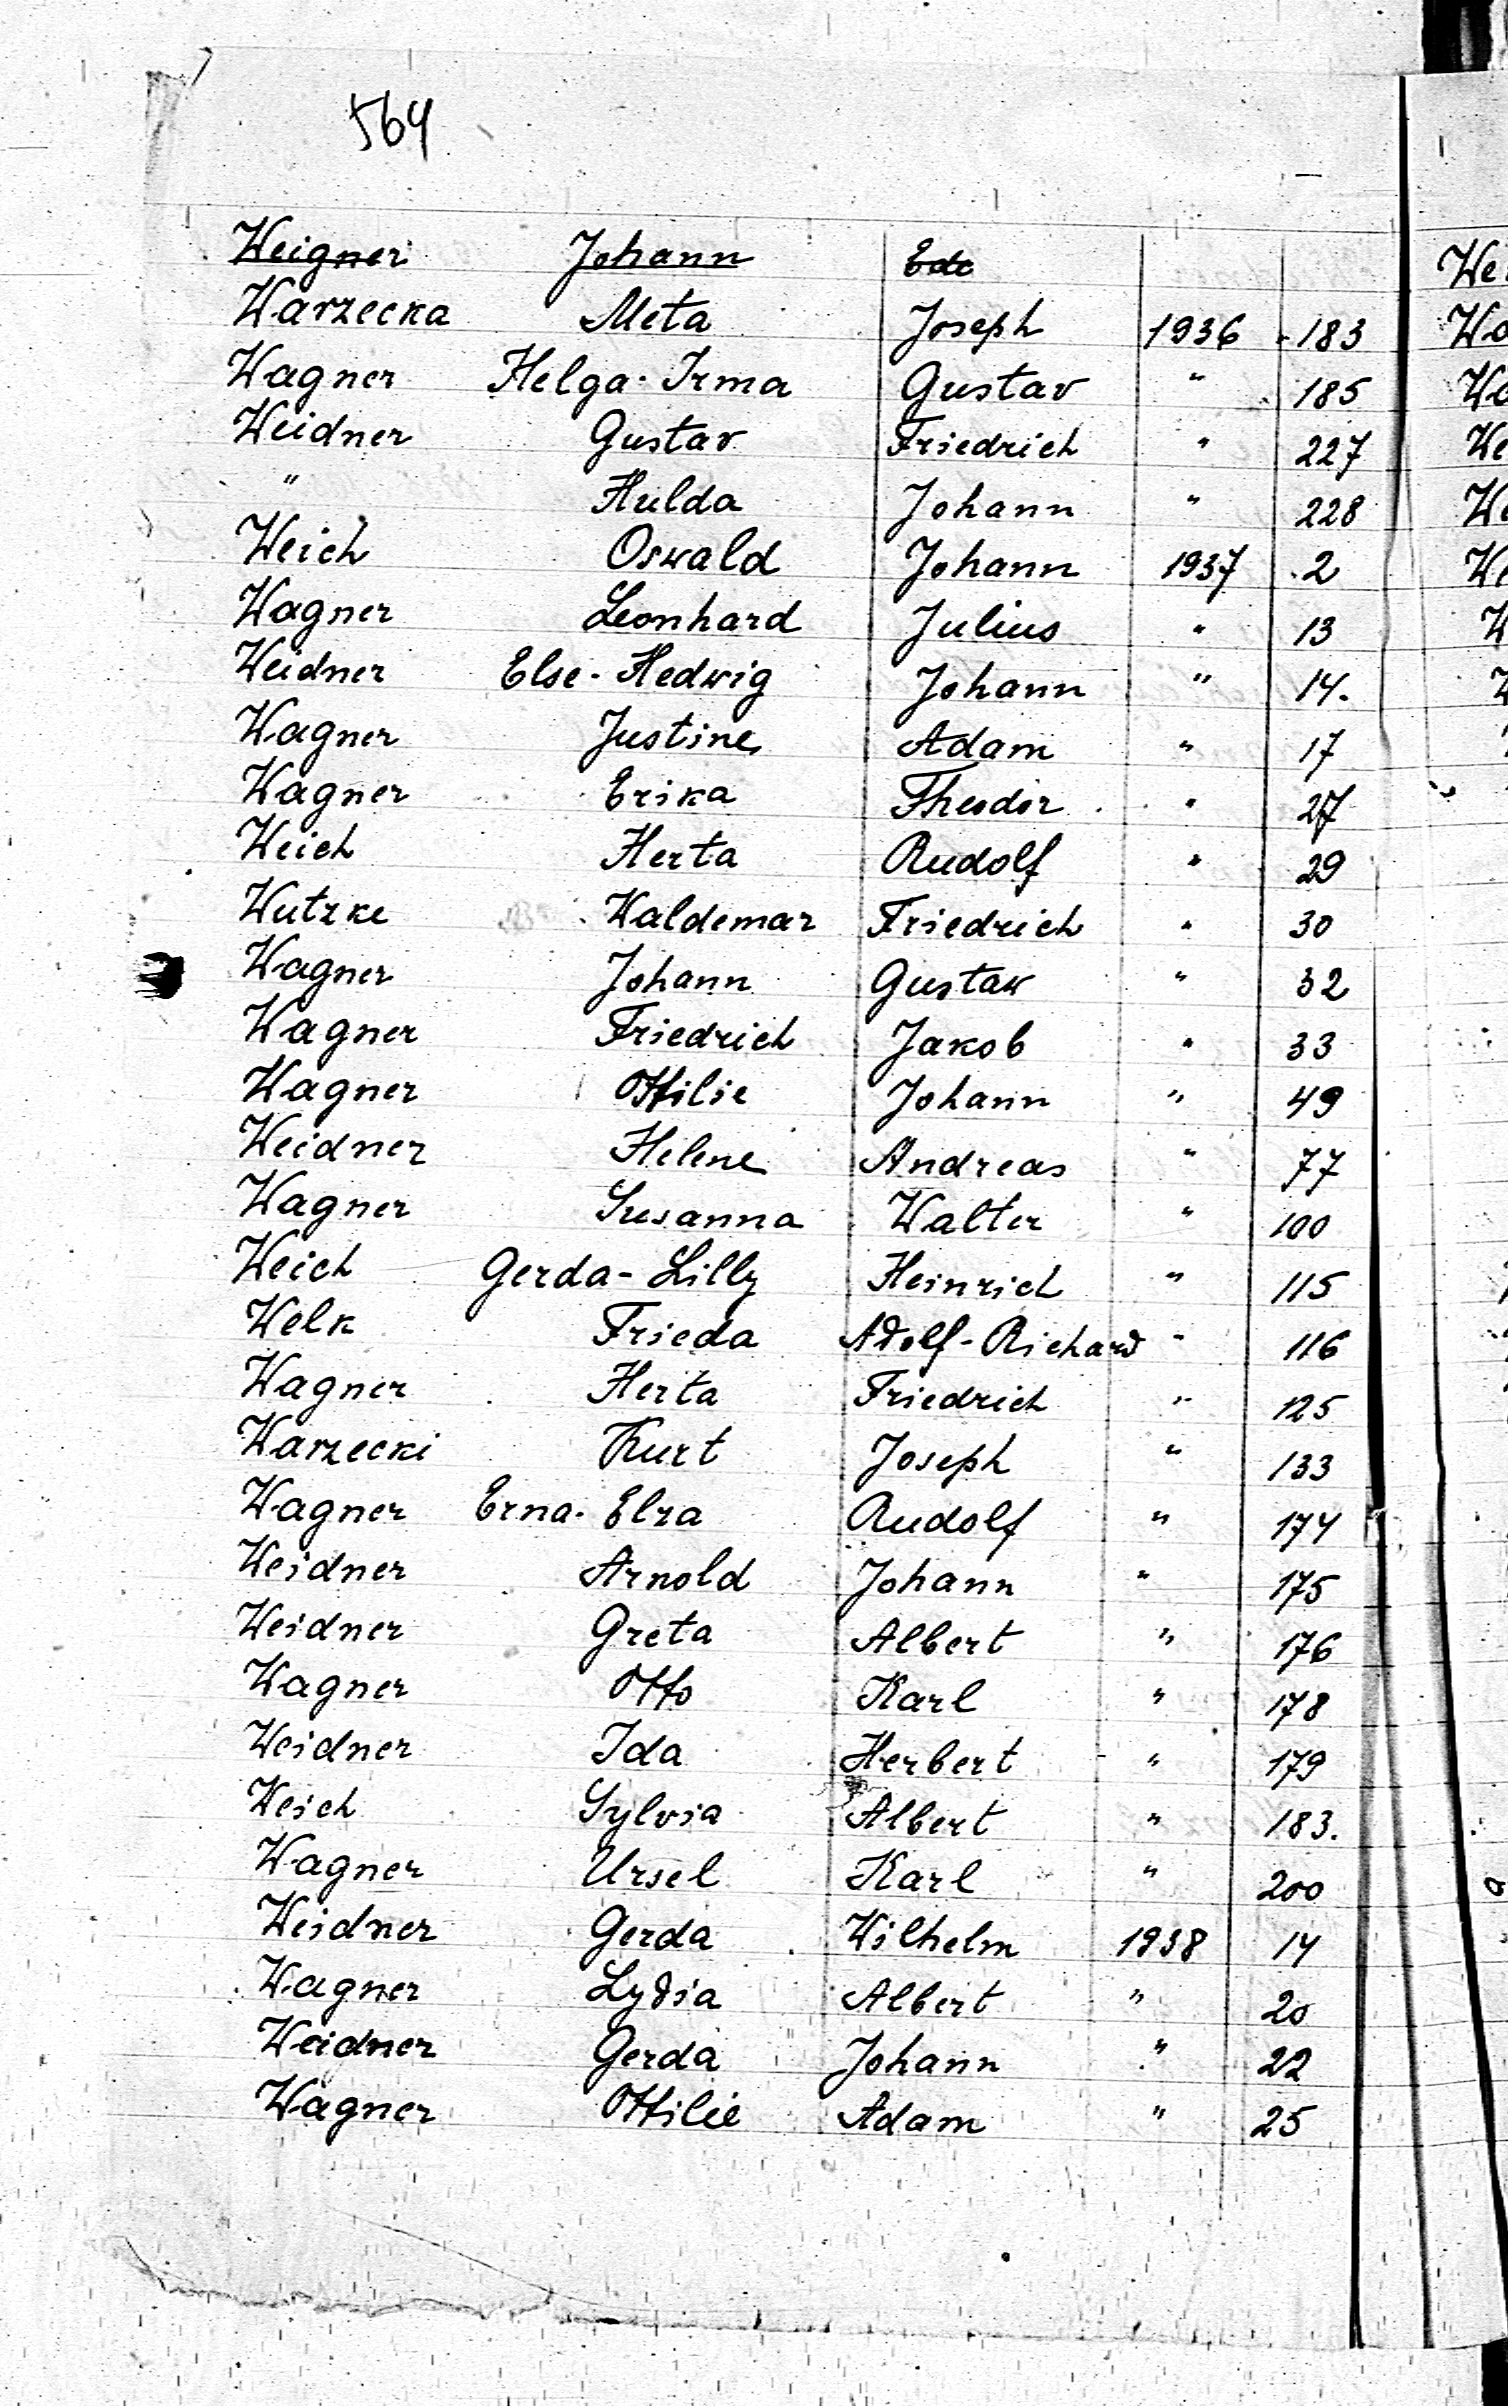 564
Weigner Johann Ede
Warzecka Meta Joseph 1936 183
Wagner Helga-Irma Gustav " 185
Weidner Gustav Friedrich " 227
" Hulda Johann " 228
Weich Oswald Johann 1937 2
Wagner Leonhard Julius " 13
Weidner Else-Hedwig Johann " 14.
Wagner Justine Adam " 17
Wagner Erika Theodor " 27
Weich Herta Rudolf " 29
Wutzke Waldemar Friedrich " 30
Wagner Johann Gustaw " 32
Wagner Friedrich Jakob " 33
Wagner Ottilie Johann " 49
Weidner Helene Andreas " 77
Wagner Susanna Walter " 100
Weich Gerda-Lilly Heinrich " 115
Welk Frieda Adolf-Richard " 116
Wagner Herta Friedrich " 125
Warzecki Kurt Joseph " 133
Wagner Erna-Elza Rudolf " 174
Weidner Arnold Johann " 175
Weidner Greta Albert " 176
Wagner Otto Karl " 178
Weidner Ida Herbert " 179
Weich Sylvia Albert " 183.
Wagner Ursel Karl " 200
Weidner Gerda Wilhelm 1938 14
Wagner Lydia Albert " 20
Weidner Gerda Johann " 22
Wagner Ottilie Adam " 25